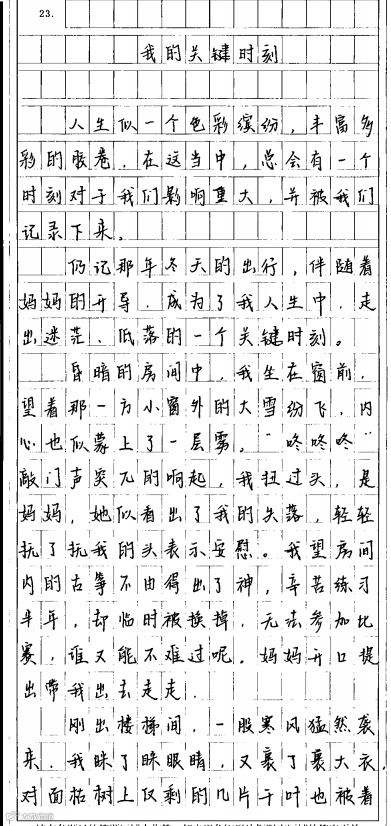 23.
我的关键时刻
人生似一个色彩缤纷，丰富多
彩的胶卷，在这当中，总会有一个
时刻对于我们影响重大，并被我们
记录下来。
仍记那年冬天的出行，伴随着
妈妈的开导，成为了我人生中，走
出迷茫、低落的一个关键时刻。
昏暗的房间中，我坐在窗前，
望着那一方小窗外的大雪纷飞，内
心也似蒙上了一层雾。“咚咚咚”
敲门声突兀的响起，我扭过头，是
妈妈，她似看出了我的失落，轻轻
抚了抚我的头表示安慰。我望房间
内的古筝不由得出了神，辛苦练习
半年，却临时被换掉，无法参加比
赛，谁又能不难过呢。妈妈开口提
出带我出去走走．
刚出楼梯间，一股寒风猛然袭
来，我眯了眯眼睛，又裹了裹大衣，
对面枯树上仅剩的几片干叶也被着